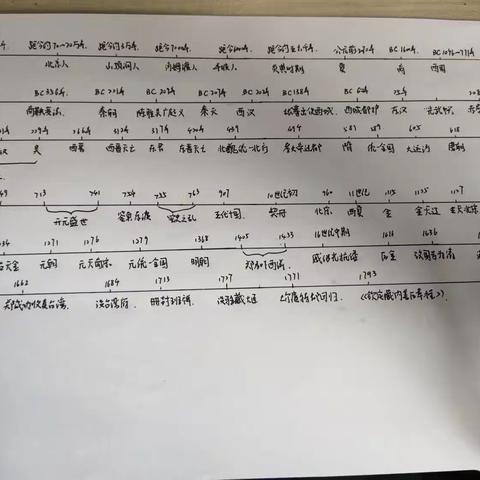 距今约70~20万年 距今约3万年 距今7000年 距今6000年 公元前2070年 BC 1600年 BC 1046~771年
北京人 山顶洞人 河姆渡人 半坡人 炎黄时期 夏 商 西周
BC 356年 BC 221年 BC 209年 BC 207年 BC 202年 BC 138年 BC 60年 25年
商鞅变法 秦朝 陈胜吴广起义 秦亡 西汉 张骞出使西域 西域都护 东汉
229年 266年 317年 420年 439 494 581 589 605 618
吴 西晋 西晋灭亡 东晋 东晋灭亡 孝文帝迁都 隋 统一全国 大运河 唐朝
713 741 754 755 763 907 10世纪初 960 11世纪 1115 1125 1127
开元盛世 鉴真东渡 安史之乱 五代十国 契丹 北宋 西夏 金 金灭辽 金灭北宋
1271 1276 1279 1368 1405 1433 16世纪中期 1616 1636
元朝 元灭南宋 元统一全国 明朝 郑和下西洋 戚继光抗倭 后金 改国号为清
1662 1684 1713 1727 1771 1793
郑成功收复台湾 设台湾府 册封班禅 设驻藏大臣 土尔扈特部回归 《钦定藏内善后章程》